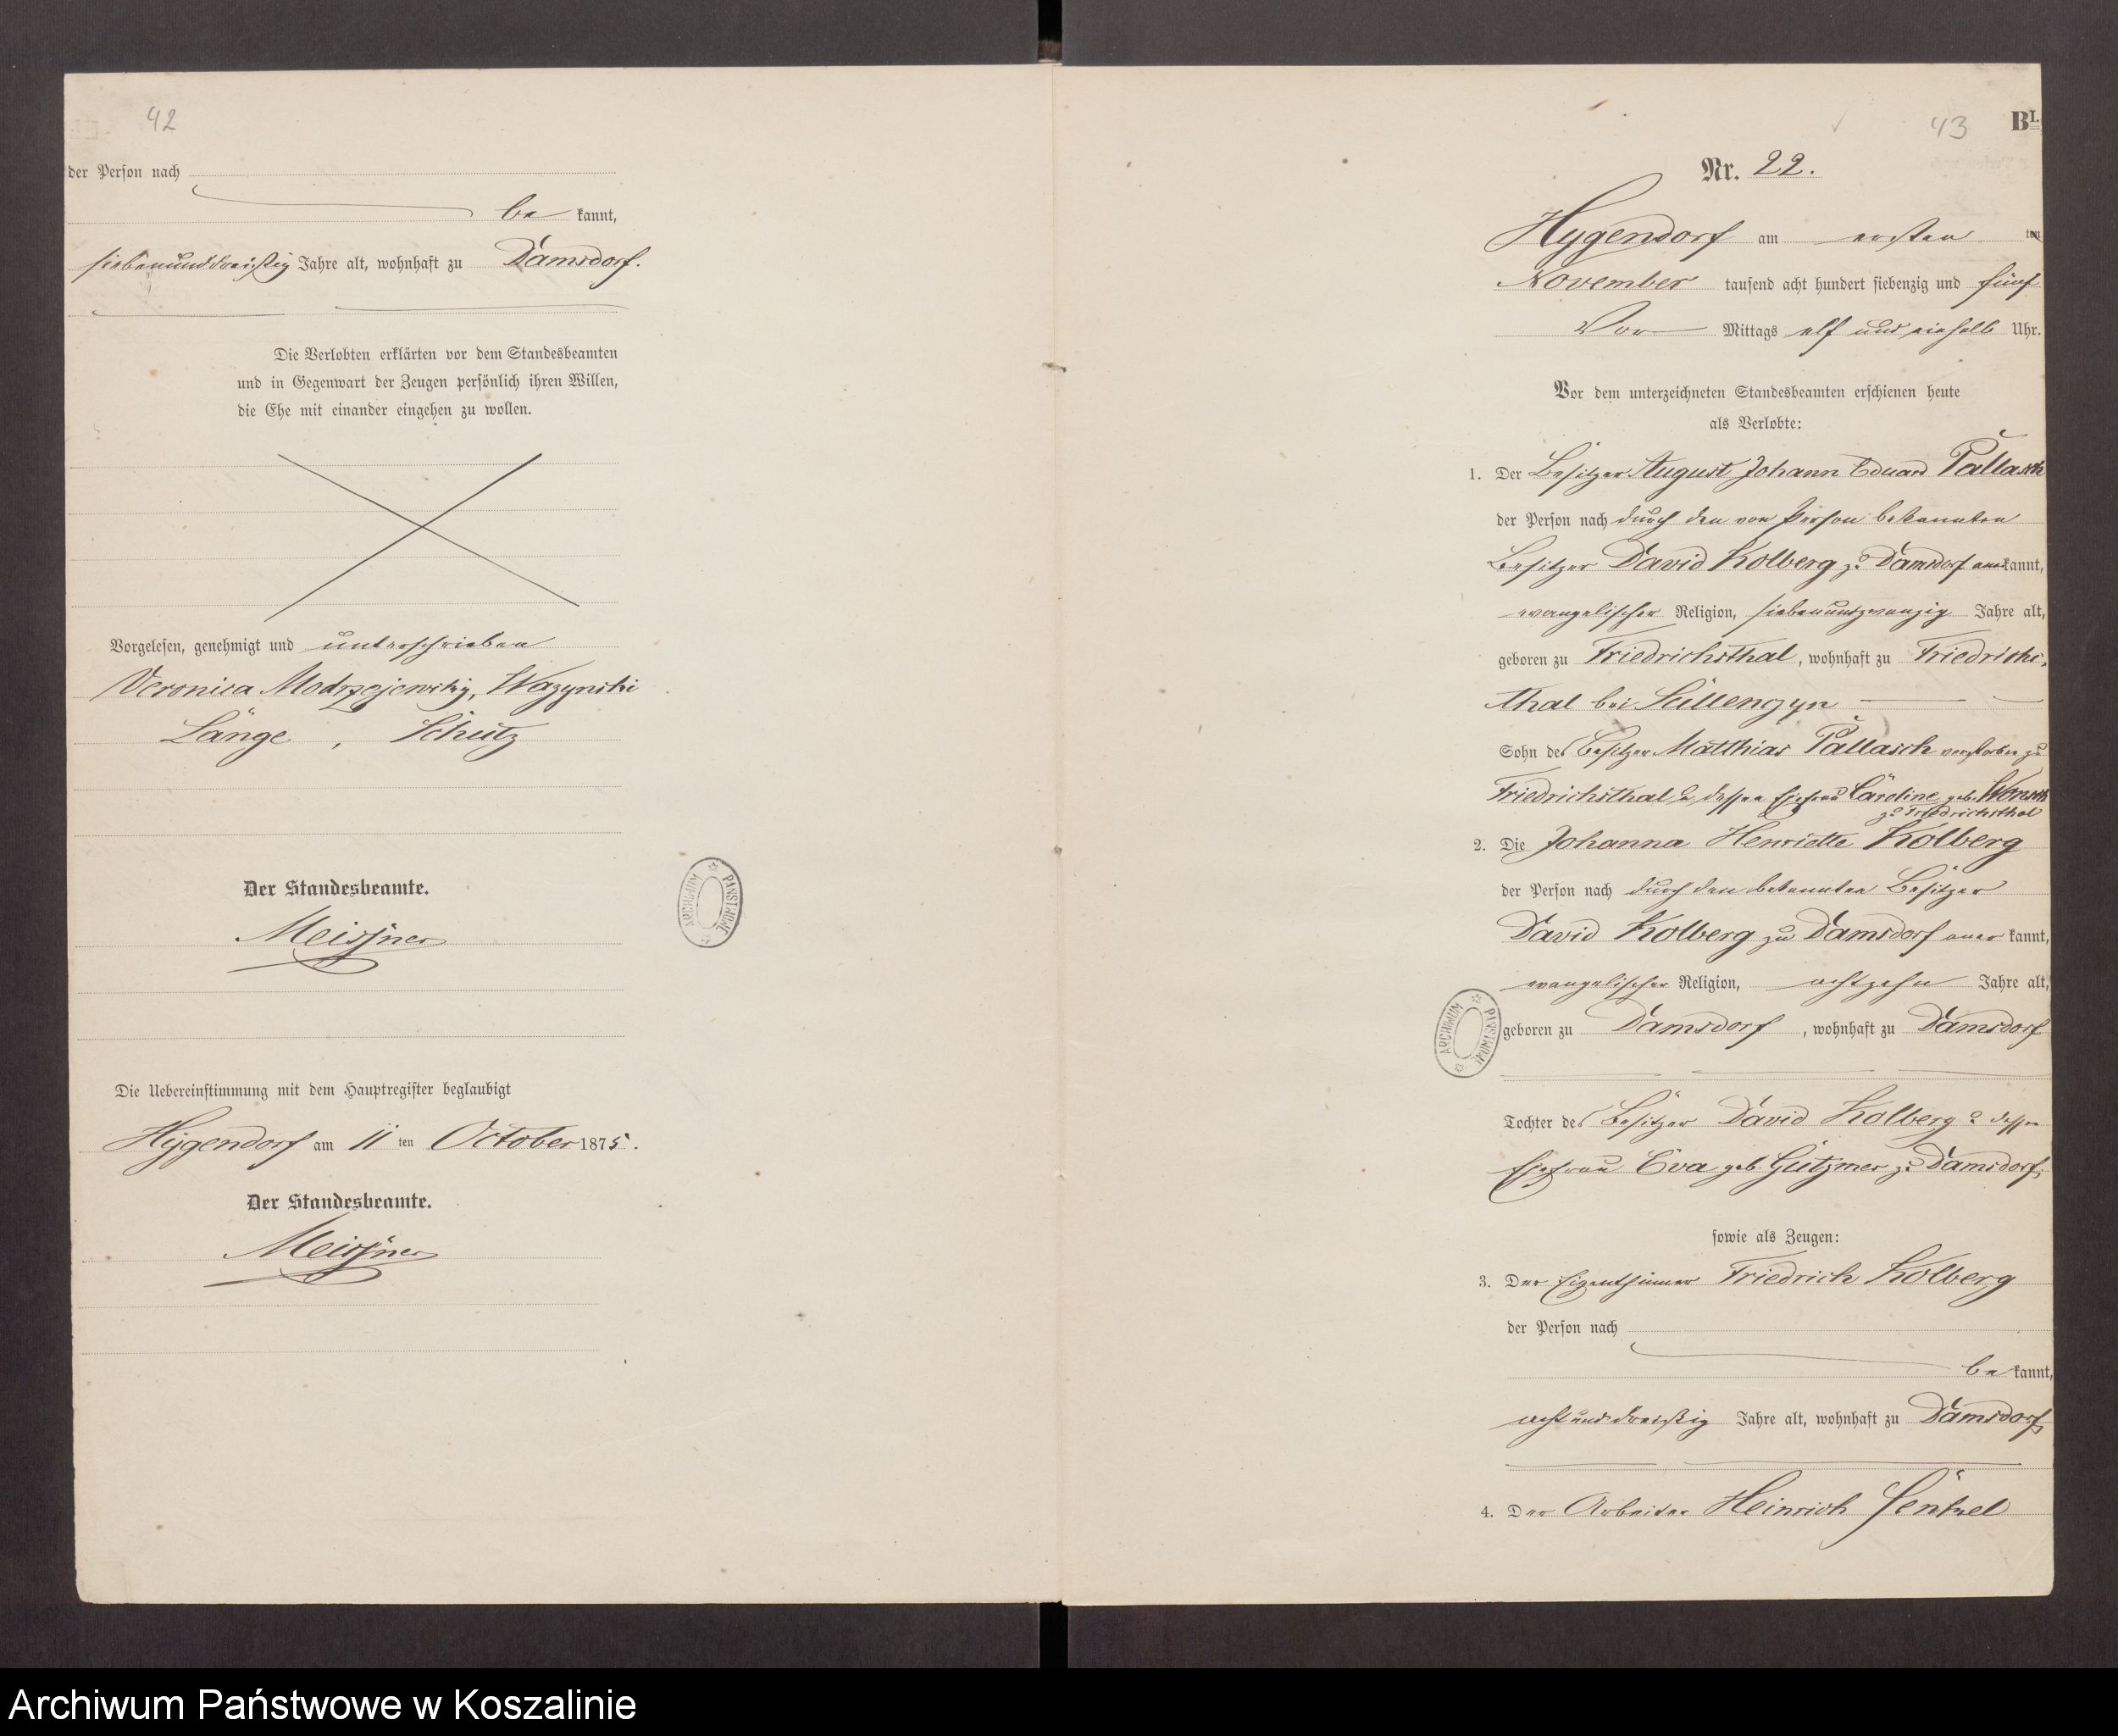 42
der Person nach
be kannt,
siebenunddreißig Jahre alt, wohnhaft zu Damsdorf.
Die Verlobten erklärten vor dem Standesbeamten
und in Gegenwart der Zeugen persönlich ihren Willen,
die Ehe mit einander eingehen zu wollen.
Vorgelesen, genehmigt und unterschrieben
Veronica Wazynski
Lange, Schutz
Der Standesbeamte.
Meissner
Die Uebereinstimmung mit dem Hauptregister beglaubigt
Hygendorf am 11 ten October 1875.
Der Standesbeamte.
Meissner
ARCHIWUM PAŃSTWOWE
43
BI.
Nr. 22.
Hygendorf am ersten ten
November tausend acht hundert siebenzig und fünf
Vor Mittags elf und einhalb Uhr.
Vor dem unterzeichneten Standesbeamten erschienen heute
als Verlobte:
1. Der Besitzer August Johann Eduard Pallasch
der Person nach durch den von Person bekannten
Besitzer David Kolberg zu Damsdorf anerkannt,
evangelischer Religion, siebenundzwanzig Jahre alt,
geboren zu Friedrichsthal, wohnhaft zu Friedrichs-
thal bei
Sohn des Besitzer Matthias Pallasch verstorben zu
Friedrichsthal u dessen Ehefrau Caroline geb.
zu Friedrichsthal
2. Die Johanna Henriette Kolberg
der Person nach durch den bekannten Besitzer
David Kolberg zu Damsdorf aner kannt,
evangelischer Religion, achtzehn Jahre alt,
geboren zu Damsdorf, wohnhaft zu Damsdorf
ARCHIWUM PAŃSTWOWE
Tochter des Besitzer David Kolberg u dessen
Ehefrau Eva geb. Gützmer zu Damsdorf,
sowie als Zeugen:
3. Der Eigenthümer Friedrich Kolberg
der Person nach
be kannt,
achtunddreißig Jahre alt, wohnhaft zu Damsdorf,
4. Der Arbeiter Heinrich
Archiwum Państwowe w Koszalinie